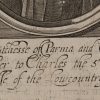 utchesse of Parma and
er to Charles the 5
e of the Loucountri